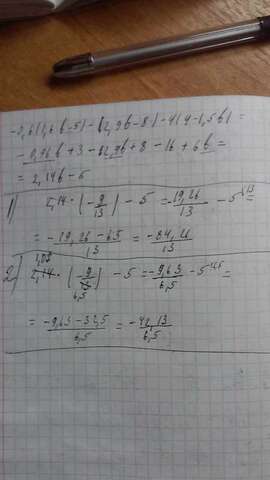 -0,6(1,6b-5)-(2,9b-8)-4(4-1,5b)=
-0,96b+3-2,9b+8-16+6b=
=2,14b-5
1) 2,14·(-9/13)-5=19,26/13-5=
=-19,26-65/13=-84,26/13
2) 2,14·(-9/13)-5=-9,63/6,5-5=
=-9,63-32,5/6,5=-42,13/6,5